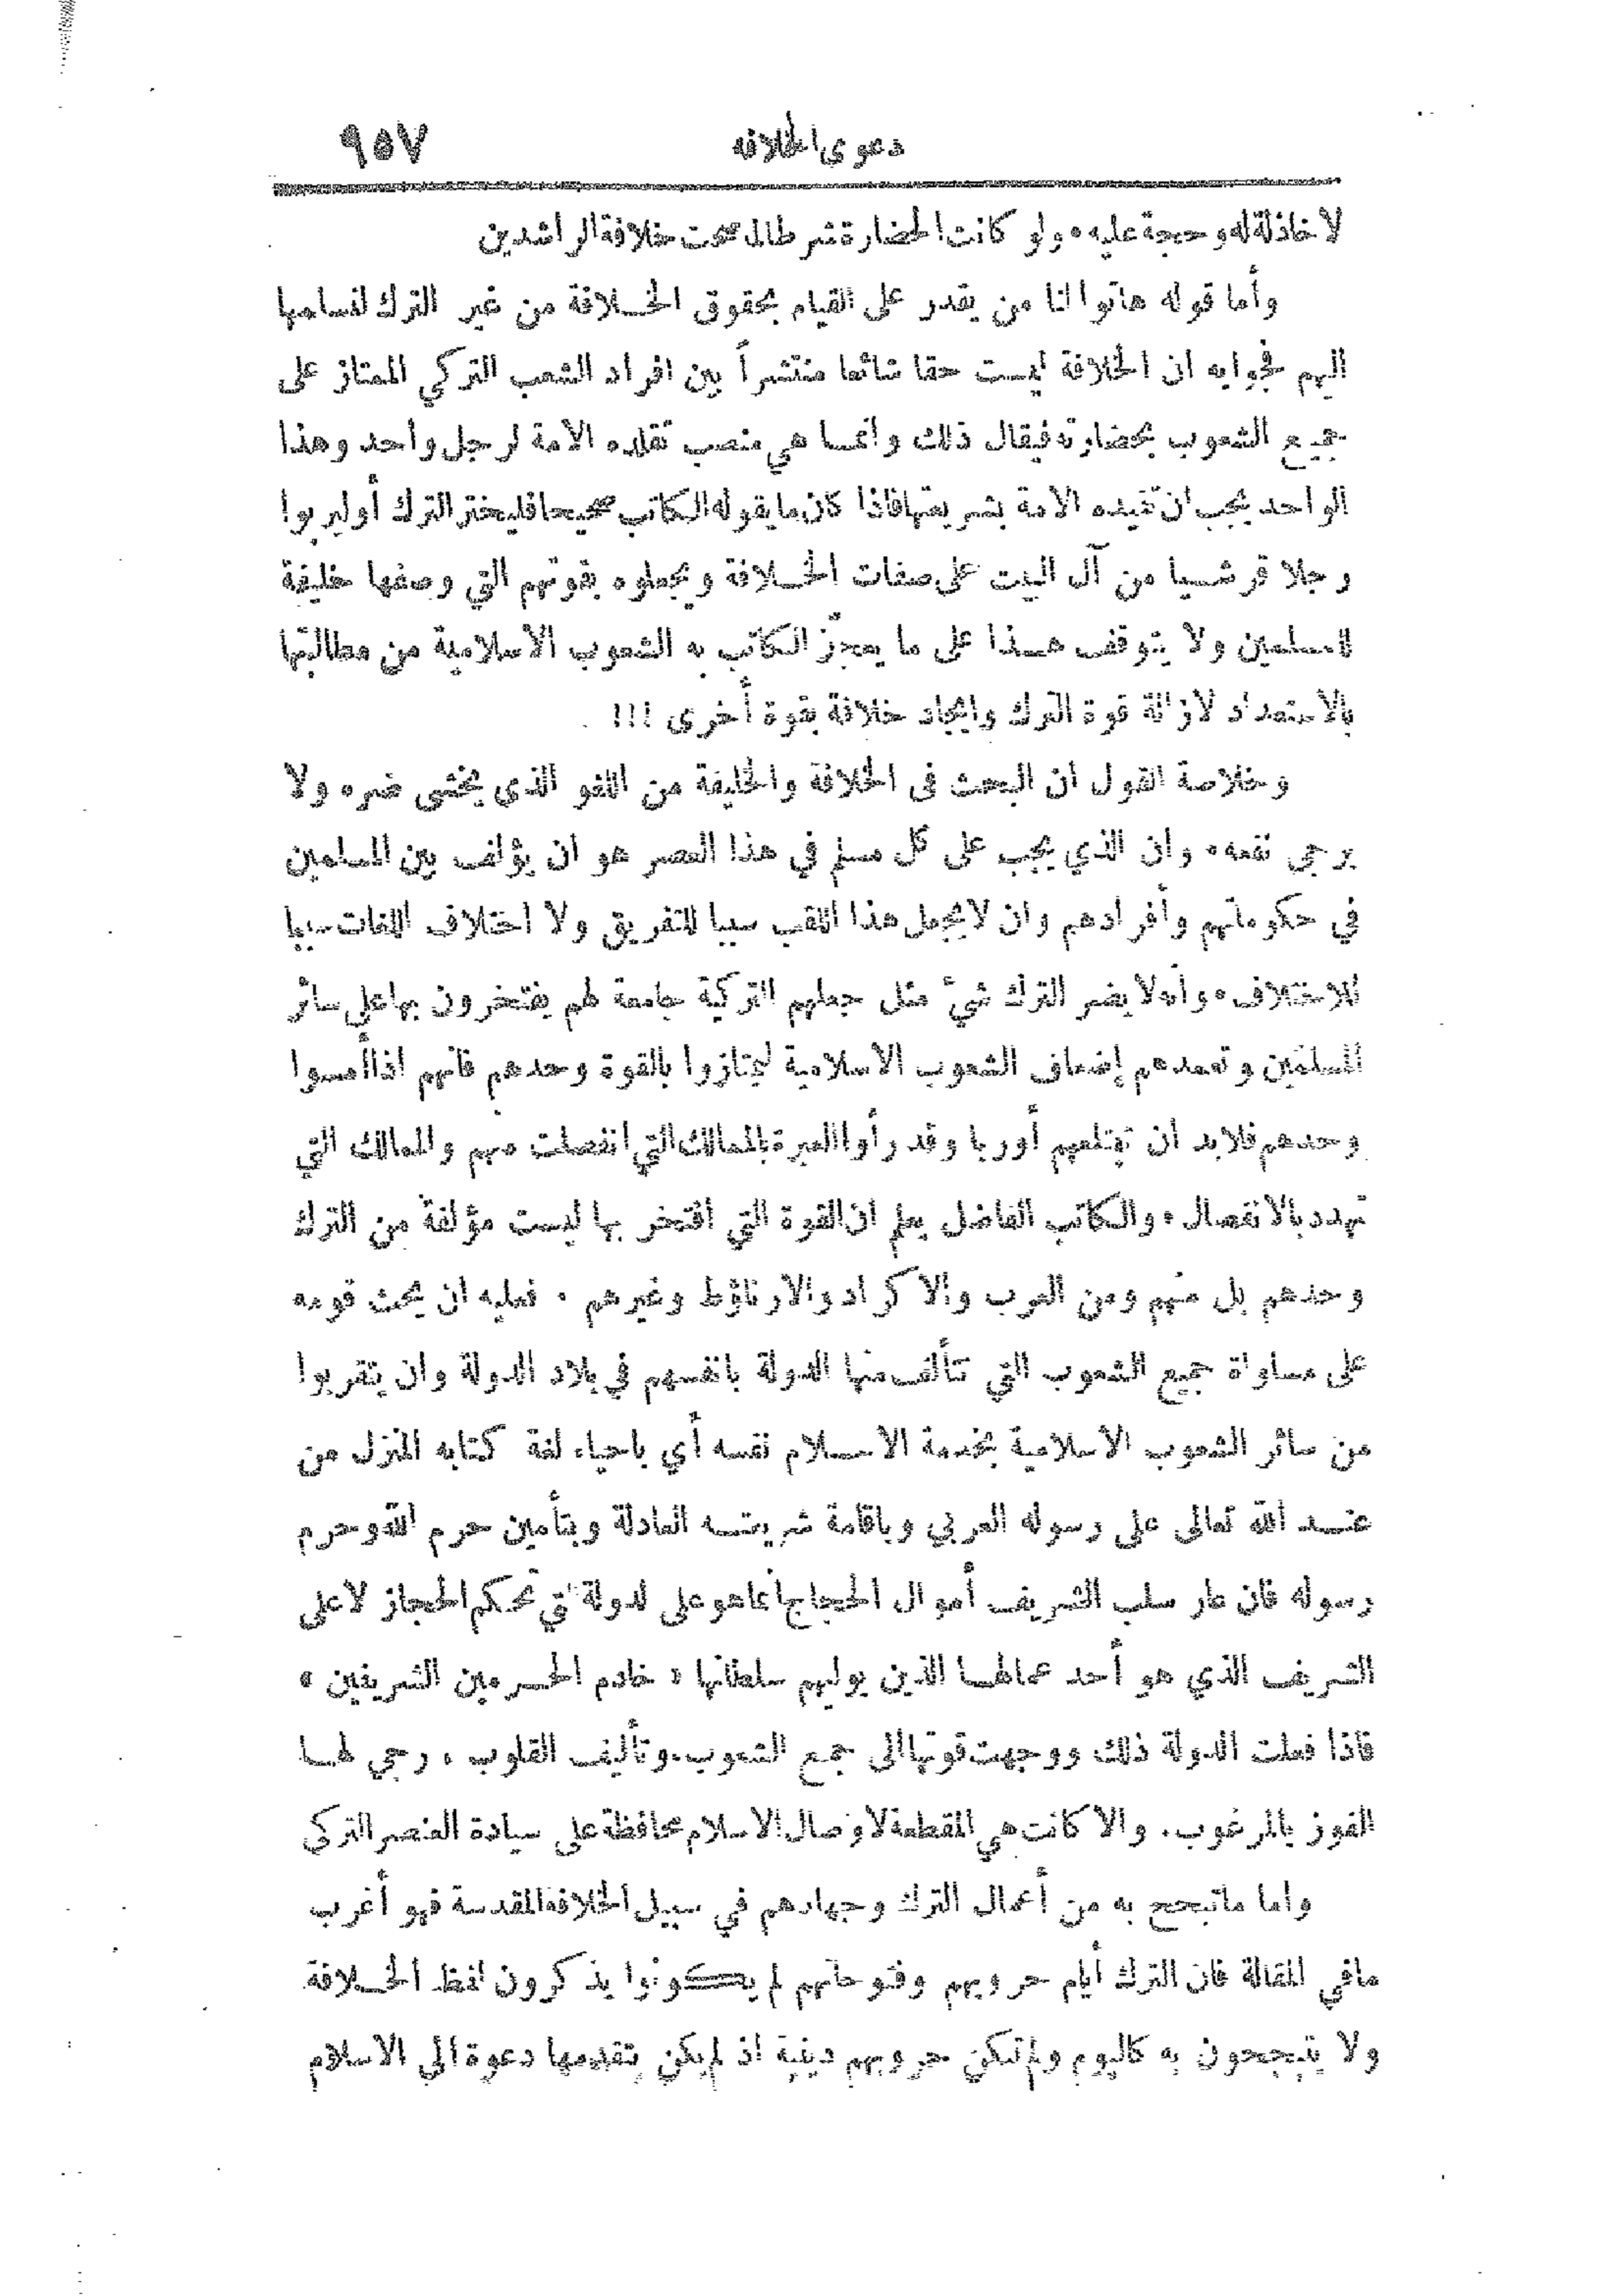 دعوى الخلافة ٩٥٧
لا خاذلة له وحجة عليه ٠ ولو كانت الحضارة شرطا لما صحت خلافة الراشدين
وأما قوله هاتوا لنا من يقدر على القيام بحقوق الخـلافة من غير الترك لنسلمها
اليهم فجوابه ان الخلافة ليست حقا شائعا منتشراً بين افراد الشعب التركي الممتاز على
جميع الشعوب بحضارته فيقال ذلك وانمـا هي منصب تقلده الامة لرجل واحد وهذا
الواحد يجب ان تقيده الامة بشريعتها فاذا كان ما يقوله الكاتب صحيحا فليختر الترك أو ليربوا
رجلا قرشـيا من آل البيت على صفات الخـلافة ويجعلوه بقوتهم التي وصفها خليفة
للمسلمين ولا يتوقف هـذا على ما يعجزّ الكاتب به الشعوب الاسلامية من مطالبتها
بالاستعداد لازالة قوة الترك وايجاد خلافة بقوة أخرى !!!
وخلاصة القول ان البحث فى الخلافة والخليفة من اللغو الذي يخشى ضره ولا
يرجى نفعه ٠ وان الذي يجب على كل مسلم في هذا العصر هو ان يؤلف بين المسلمين
في حكوماتهم وأفرادهم وان لا يجعل هذا اللقب سببا للتفريق ولا اختلاف اللغات سببا
للاختلاف ٠ وانه لا يضر الترك شيءٌ مثل جعلهم التركية جامعة لهم يفتخرون بها على سائر
المسلمين وتعمدهم إضعاف الشعوب الاسلامية ليمتازوا بالقوة وحدهم فانهم اذا أمسوا
وحدهم فلا بد ان تبتلعهم أوربا وقد رأوا العبرة بالممالك التي انفصلت منهم والممالك التي
تهدد بالانفصال ٠ والكاتب الفاضل يعلم ان القوة التي افتخر بها ليست مؤلفة من الترك
وحدهم بل منهم ومن العرب والاكراد والارناؤط وغيرهم ٠ فعليه ان يحث قومه
على مساواة جميع الشعوب التي تتألف منها الدولة بانفسهم في بلاد الدولة وان يتقربوا
من سائر الشعوب الاسلامية بخدمة الاسـلام نفسه أي باحياء لغة كتابه المنزل من
عنـد الله تعالى على رسوله العربي وباقامة شريعتـه العادلة وبتأمين حرم الله وحرم
رسوله فان عار سلب الشريف أموال الحجاج انما هو على الدولة التي تحكم الحجاز لا على
الشريف الذي هو أحد عمالهـا الذين يوليهم سلطانها « خادم الحـرمين الشريفين »
فاذا فعلت الدولة ذلك ووجهت قوتها الى جمع الشعوب، وتأليف القلوب ، رجي لهـا
الفوز بالمرغوب. والا كانت هي المقطعة لاوصال الاسلام محافظة على سيادة العنصر التركى
واما ما تبجح به من أعمال الترك وجهادهم في سبيل الخلافة المقدسة فهو أغرب
ما في المقالة فان الترك أيام حروبهم وفتوحاتهم لم يكـونوا يذكرون لفظ الخـلافة
ولا يتبجحون به كاليوم ولم تكن حروبهم دينية اذ لم يكن يتقدمها دعوة الى الاسلام